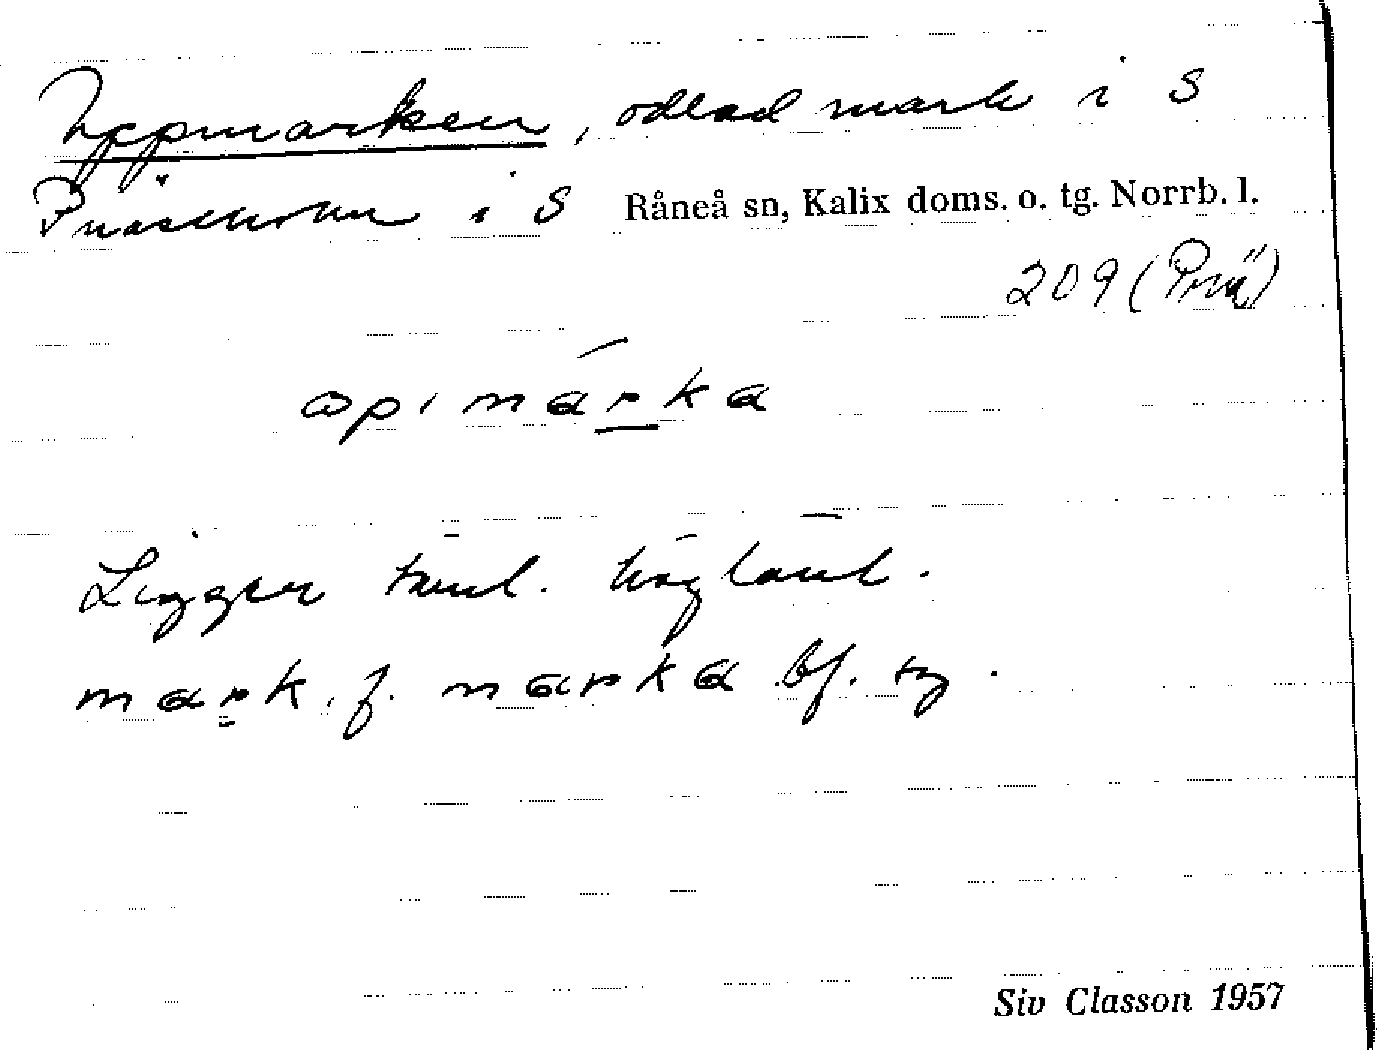 Uppmarken, odlad mark i S
Prästholm i S Råneå sn, Kalix doms. o. tg. Norrb. l.
209 (Prä)
Ligger äml. högländ.
mark. f. marka bf. sg.
Siv Classon 1957